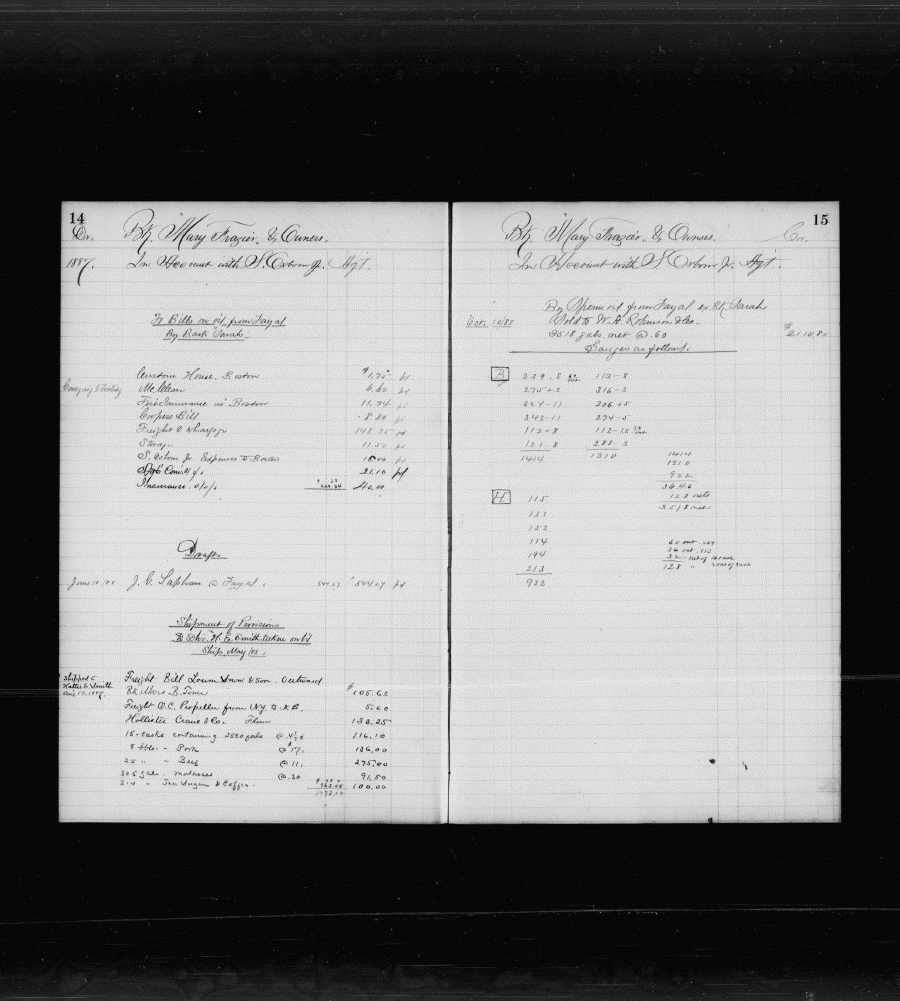 14
Dr.
Bk. "Mary Frazier" & Owners.
1887.
In Account with S. Osborn Jr. Agt.
To Bills on oil from Fayal
By Bark "Sarah"
Custom House, Boston $1.75 pd
Gauging & Testing 6.60 pd
Fire Insurance in Boston 11.74 pd
Coopers Bill 8.80 pd
Freight & Wharfage 148.25 pd
Storage 11.50 pd
S. Osborn Jr Expenses to Boston 15.00 pd
21.10 pd
Insurance 40.00
Drafts
J. C. Lapham @ Fayal 544.27 $544.27 pd
Shipment of Provisions
To Schr. "H. E. Smith" taken on b'd
Ship, May/88.
Shipped to
Hattie E Smith
Aug 17. 1887.
Freight Bill Loum Snow & Son. Outward
$105.63
Freight P.C. Propeller from N.Y. to N.B. 5.60
Hollister Crane & Co. Flour 133.25
15 casks containing 2580 gals @ .4½ ¢ 116.10
8 bbls. - Pork @ $17. 136.00
25 " - Beef @ 11. 275.00
305 gals. molasses @ .30 91.50
214 " Tea Sugar & Coffee. 100.00
15
Bk. "Mary Frazier" & Owners.
Cr.
In Account with S Osborn Jr. Agt.
By Sperm oil from Fayal ex Bk Sarah
Octr 10/87 Sold to W. A. Robinson & Co.
3518 gals. net @ .60 $2110.80
Gauges as follows.
B 239-8 113-8
275+3 316-3
324-11 206+5
343-11 274-5
112+8 112-13
121-8 288-3
1414 1310
1414
1310
922
3646
128 outs
3518 net
H 115
133
153
114
194
213
922
60 out
36 out
32
128